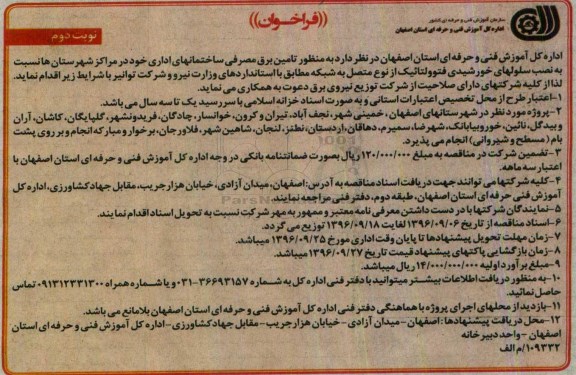 سازمان آموزش فنی و حرفه ای کشور
اداره کل آموزش فنی و حرفه ای استان اصفهان
((فراخوان))
نوبت دوم
اداره کل آموزش فنی و حرفه ای استان اصفهان در نظر دارد به منظور تامین برق مصرفی ساختمانهای اداری خود در مراکز شهرستان ها نسبت
به نصب سلولهای خورشیدی فتوولتائیک از نوع متصل به شبکه مطابق با استانداردهای وزارت نیرو و شرکت توانیر با شرایط زیر اقدام نماید.
لذا از کلیه شرکتهای دارای صلاحیت از شرکت توزیع نیروی برق دعوت به همکاری می نماید.
۱-اعتبار طرح از محل تخصیص اعتبارات استانی و به صورت اسناد خزانه اسلامی با سررسید یک تا سه سال می باشد.
۲-پروژه مورد نظر در شهرستانهای اصفهان، خمینی شهر، نجف آباد، تیران و کرون، خوانسار، چادگان، فریدونشهر، گلپایگان، کاشان، آران
و بیدگل، نائین، خوروبیابانک، شهرضا، سمیرم، دهاقان، اردستان، نطنز، لنجان، شاهین شهر، فلاورجان، برخوار و مبارکه انجام و بر روی پشت
بام (مسطح و شیروانی) انجام می پذیرد.
۳-تضمین شرکت در مناقصه به مبلغ ۱۲۰/۰۰۰/۰۰۰ ریال بصورت ضمانتنامه بانکی در وجه اداره کل آموزش فنی و حرفه ای استان اصفهان با
اعتبار سه ماهه.
۴-کلیه شرکتها می توانند جهت دریافت اسناد مناقصه به آدرس: اصفهان، میدان آزادی، خیابان هزار جریب، مقابل جهاد کشاورزی، اداره کل
آموزش فنی حرفه ای استان اصفهان، طبقه دوم، دفتر فنی مراجعه نمایند.
۵-نمایندگان شرکتها با در دست داشتن معرفی نامه معتبر و ممهور به مهر شرکت نسبت به تحویل اسناد اقدام نمایند.
۶-اسناد مناقصه از تاریخ ۱۳۹۶/۰۹/۰۶ لغایت ۱۳۹۶/۰۹/۱۸ توزیع می گردد.
۷-زمان مهلت تحویل پیشنهادها تا پایان وقت اداری مورخ ۱۳۹۶/۰۹/۲۵ میباشد.
۸-زمان بازگشایی پاکتهای پیشنهاد قیمت تاریخ ۱۳۹۶/۰۹/۲۷ میباشد.
۹-مبلغ برآورد اولیه ۱۴/۰۰۰/۰۰۰/۰۰۰ ریال میباشد.
۱۰-به منظور دریافت اطلاعات بیشتر میتوانید با دفتر فنی اداره کل به شماره ۳۶۶۹۳۱۵۷-۰۳۱ و یا شماره همراه ۰۹۱۳۱۲۳۳۱۳۰۰ تماس
حاصل نمائید.
۱۱-بازدید از محلهای اجرای پروژه با هماهنگی دفتر فنی اداره کل آموزش فنی و حرفه ای استان اصفهان بلامانع می باشد.
۱۲-محل دریافت پیشنهادها: اصفهان - میدان آزادی - خیابان هزار جریب - مقابل جهاد کشاورزی - اداره کل آموزش فنی و حرفه ای استان
اصفهان - واحد دبیرخانه
۱۰۹۳۳۲/م الف